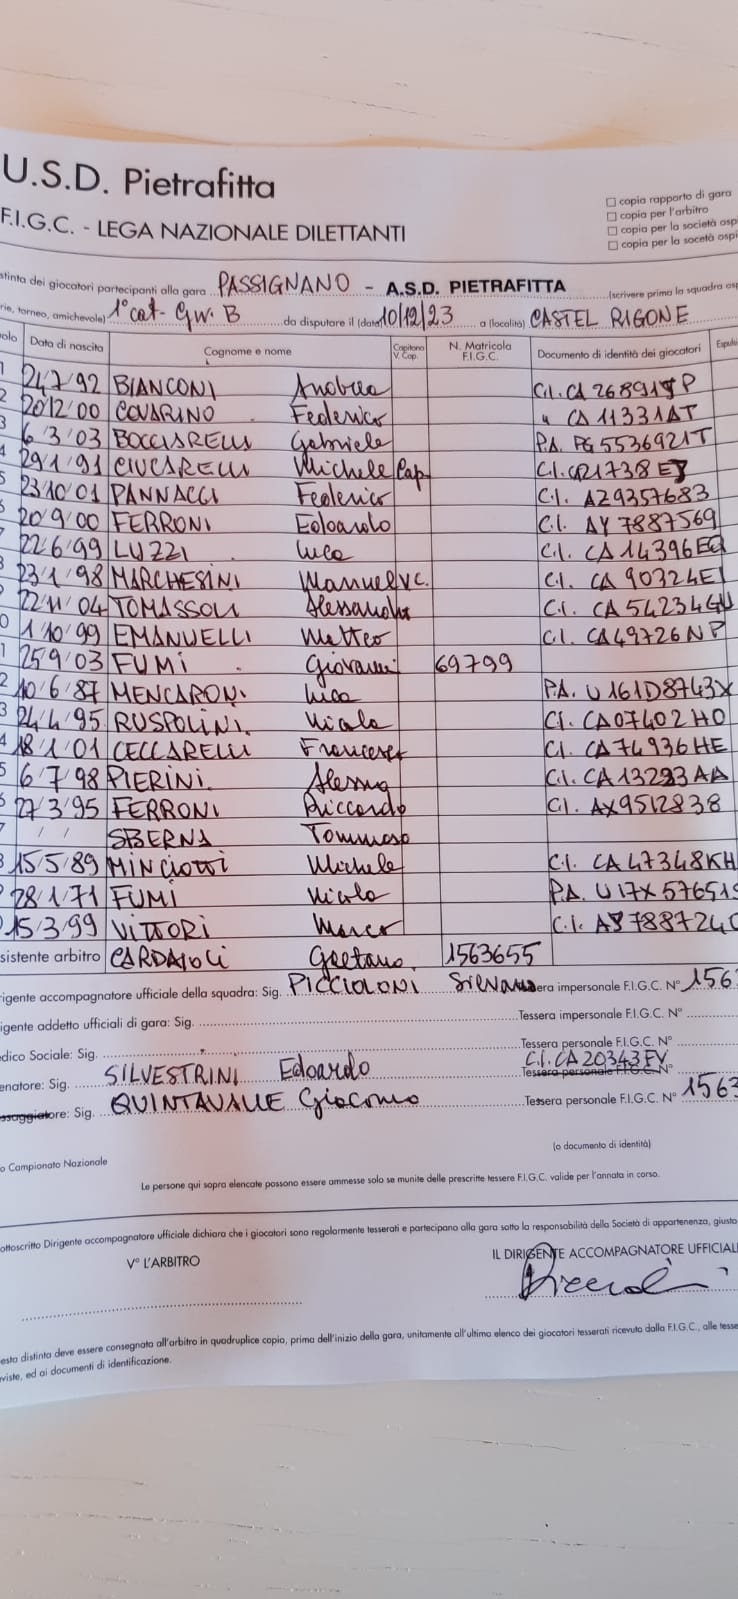 U.S.D. Pietrafitta
F.I.G.C. - LEGA NAZIONALE DILETTANTI
copia rapporto di gara
copia per l'arbitro
copia per la società osp
copia per la socetà ospi
stinta dei giocatori partecipanti alla gara PASSIGNANO - A.S.D. PIETRAFITTA (scrivere prima la squadra osp
rie, torneo, amichevole) 1° cat - Gir. B da disputare il (data) 10/12/23 a (località) CASTEL RIGONE
olo Data di nascita Cognome e nome Capitano V. Cap. N. Matricola F.I.G.C. Documento di identità dei giocatori Espuls
1 24/7/92 BIANCONI Andrea C.I. CA 26891
2 20/12/00 COVARINO Federico " CA 11331AT
3 6/3/03 BOCCIARELLI Gabriele P.A. PG5536921T
4 29/1/91 CIUCARELLI Michele Cap. C.I.
5 23/10/01 PANNACCI Federico C.I. AZ9357683
6 20/9/00 FERRONI Edoardo C.I. AY 7887569
7 22/6/99 LUZZI Luca C.I. CA 14396EQ
8 23/1/98 MARCHESINI Manuel V.C. C.I. CA 90324EI
9 22/11/04 TOMASSOLI Alessandro C.I. CA 54234GU
0 1/10/99 EMANUELLI Matteo C.I. CA49726NP
1 25/9/03 FUMI Giovanni 69799
2 10/6/87 MENCARONI Luca P.A. U161D8743X
3 24/4/95 RUSPOLINI Nicola C.I. CA07402HO
4 18/1/01 CECCARELLI Francesco C.I. CA74936HE
5 6/7/98 PIERINI Alessio C.I. CA13293AA
6 27/3/95 FERRONI Riccardo C.I. AX9512838
7 / / SBERNA Tommaso
8 15/5/89 MINCIOTTI Michele C.I. CA47348KH
9 28/1/71 FUMI Nicola P.A. U17X57651S
0 15/3/99 VITTORI Marco C.I. AY788724C
sistente arbitro CARDAIOLI Gaetano 1563655
rigente accompagnatore ufficiale della squadra: Sig. PICCIOLONI Silvano sera impersonale F.I.G.C. N° 1563
igente addetto ufficiali di gara: Sig. Tessera impersonale F.I.G.C. N°
dico Sociale: Sig. Tessera personale F.I.G.C. N°
C.I. CA20343EV
enatore: Sig. SILVESTRINI Edoardo Tessera personale F.I.G.C. N°
ssaggiatore: Sig. QUINTAVALLE Giacomo Tessera personale F.I.G.C. N° 1563
(o documento di identità)
o Campionato Nazionale
Le persone qui sopra elencate possono essere ammesse solo se munite delle prescritte tessere F.I.G.C. valide per l'annata in corso.
ottoscritto Dirigente accompagnatore ufficiale dichiara che i giocatori sono regolarmente tesserati e partecipano alla gara sotto la responsabilità della Società di appartenenza, giusto
V° L'ARBITRO
IL DIRIGENTE ACCOMPAGNATORE UFFICIALE
esta distinta deve essere consegnata all'arbitro in quadruplice copia, prima dell'inizio della gara, unitamente all'ultimo elenco dei giocatori tesserati ricevuto dalla F.I.G.C., alle tesse
viste, ed ai documenti di identificazione.